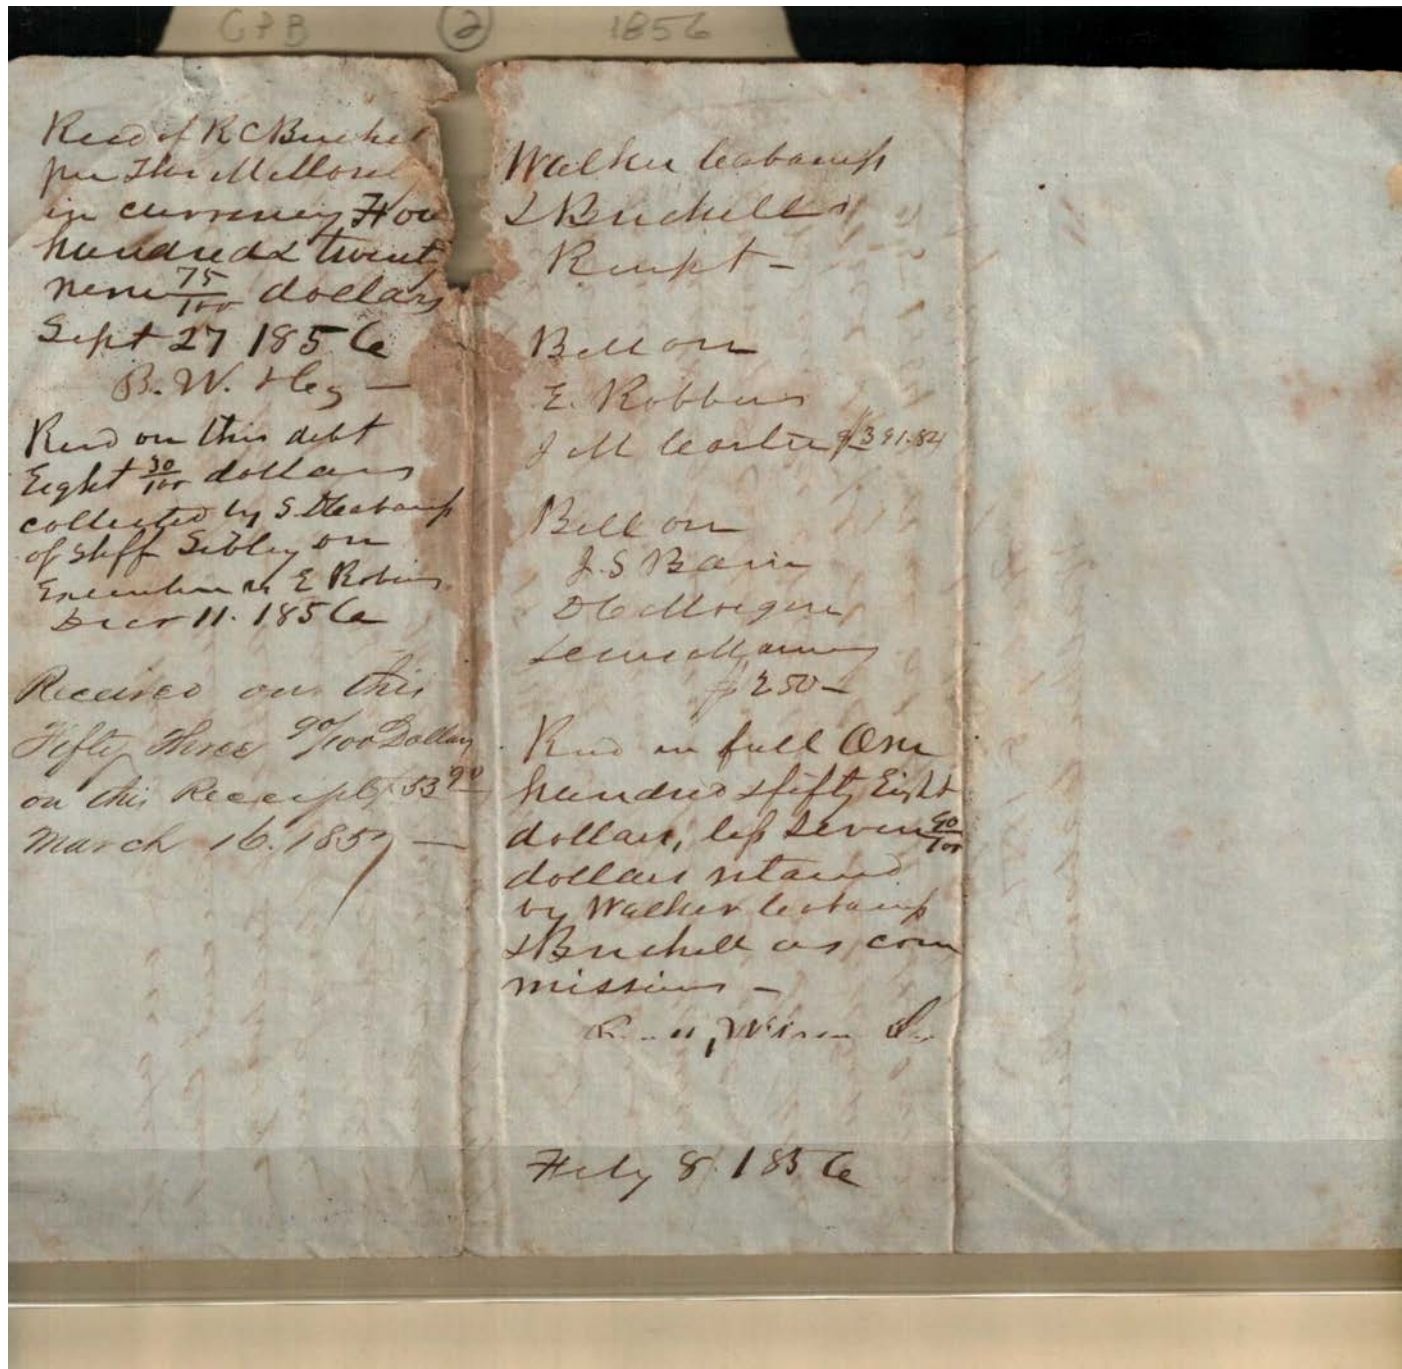 CPB 2 1856
Recd of R C Burchel
per Thos
in currency Fou
hundred & twent
nine 75/100 dollars
Sept 27 1856
B. W.
Recd on this debt
Eight 30/100 dollars
collected by S.
of Shff Sibley on
Execution vs E Robins
Decr 11. 1856
Received on this
Fifty three 90/100 Dollars
on this Receipt $53 90
March 16. 1857 —
Walker Cabaniss
& Burchell
Receipt —
Bill on
E. Robbins
J M $391.84
Bill on
J. S
D C
Lewis
$250 —
Recd in full One
hundred & fifty Eight
dollars, less seven 90/100
dollars retained
by Walker Cabaniss
& Burchell as com
missions —
Feby 8. 1856